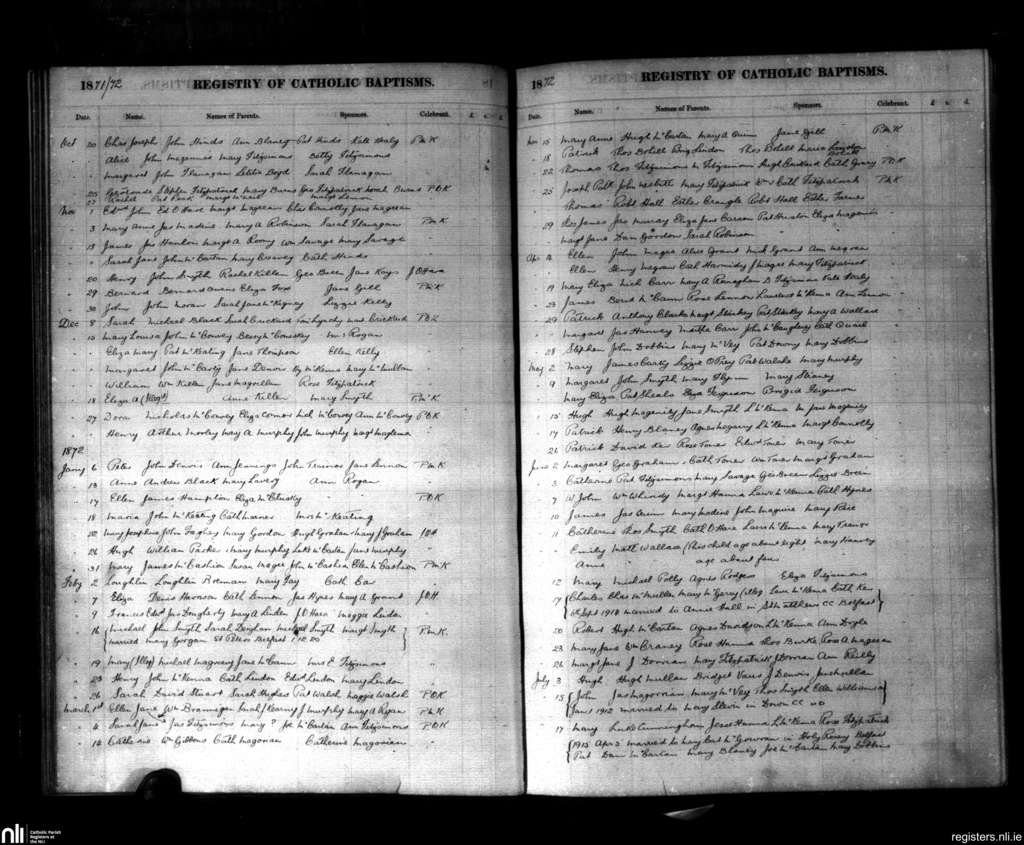 1871/72 REGISTRY OF CATHOLIC BAPTISMS.
Date. Name. Names of Parents. Sponsors. Celebrant. £ s. d.
Oct 20 Chas Joseph John Hinds Ann Blaney Pat Hinds Kate Healy PMcK
" Alice John Magennis Mary Fitzsimons Betty Fitzsimons
" Margaret John Flanagan Letitia Boyd Sarah Flanagan
25 Stephen Fitzpatrick Mary Burns Geo Fitzpatrick Burns POK
27 Rachel Pat
Nov 1 Edwd John Ed O'Hare Margt Magreean Chas Connolly Jane Magreean
" 3 Mary Anne Jas Madine Mary A Robinson Sarah Flanagan PMcK
" 13 James Jas Hanlon Margt A Roony Wm Savage Mary Savage
" " Sarah Jane John McCartan Mary Creaney Cath Hinds
" 20 Henry John Smyth Rachel Killen Geo Breen Jane Keys JO'Hara
" 29 Bernard Bernard Owens Eliza Fox Jane Gill PMcK
" 30 John John Moran Sarah Jane McKigney Lizzie Kelly
Dec 8 Sarah Michael Black Sarah Crickard
" 10 Mary Louisa John McConvey Mrs Rogan
" " Eliza Mary Pat McKeating Jane Thompson Ellen Kelly
" " Margaret John McCarty Jane Denvir McKenna Mary McMullan
" " William Wm Killen Jane Magrillen Rose Fitzpatrick
" 18 Eliza A (Illegt) Anne Killen Mary Smyth PMcK
" 27 Dora Nicholas McConvey Eliza Connor Mich McConvey Ann McConvey POK
" " Henry Arthur Morley Mary A Murphy John Murphy Margt
1872
Jany 6 Peter John Denvir Ann Jennings John Trainor Jane Lennon PMcK
" 13 Anne Andrew Black Mary Lavery Ann Rogan
" 17 Ellen James Hampton Eliza McClusky POK
" 18 Maria John McKeating Cath Mrs McKeating
" 22 Mary Josephine John Faghey Mary Gordon Hugh Graham Mary J Graham JOH
" 26 Hugh William Parker Mary Murphy Luke McCartan Jane Murphy
" 31 Mary James McCashin Susan Magee John McCashin Ellen McCashion PMcK
Feby 2 Loughlin Loughlin Brennan Mary Fay Cath
" 7 Eliza Denis Cath Lennon Jas Hynes Mary A Grant JOH
" 9 Francis Edwd Jas Dougherty Mary A Linden J O'Hara Maggie Linden
" 16 Michael John Smyth Sarah Deighan Michael Smyth Margt Smyth PMcK
married Mary Gorgan St Peters Belfast
" 19 Mary (Illeg) Michael Magreevy Jane McCann Mrs E Fitzsimons
" 23 Henry John McKenna Cath Lindon Edwd Lindon Mary Lindon
" 26 Sarah David Stuart Sarah Hughes Pat Walsh Maggie Walsh POK
March 1st Ellen Jane Wm Brannigan J Murphy Mary A Ryan PMcK
" 4 Sarah Jane Jas Fitzsimons Mary ? McCartan Ann Fitzsimons POK
" 14 Catherine Wm Gibbons Cath Magorian Catherine Magorian
1872 REGISTRY OF CATHOLIC BAPTISMS.
Date. Name. Names of Parents. Sponsors. Celebrant. £ s. d.
Mar 15 Mary Anne Hugh McCartan Mary A Quinn Jane Gill PMcK
" 18 Patrick Thos Bohill Lindon Thos Bohill Maria
" 22 Thomas Thos Fitzsimons M Fitzsimons Hugh Crickard Cath Geary POK
" 25 Joseph Patk John Nesbitt Mary Fitzpatrick Wm & Cath Fitzpatrick PMcK
" " Thomas Robt Hall Esther Crangle Robt Hall Esther Turner
" 29 Jas James Jas Murray Eliza Jane Carson Pat Huston Eliza Magennis
" " Margt Jane Dan Gordon Sarah Robinson
Apr Ellen John Magee Alice Grant Mick Grant Ann Megran
" Ellen Henry Megran Cath J Magee Mary Fitzpatrick
" 19 Mary Eliza Mich Carr Mary A Reneghan B Fitzsimons Kate Healy
" 23 James Bernd McCann Rose Lennon Laurence McKenna Ann Lennon
" 29 Patrick Anthony Blacke Margt Starkey Pat Starkey Mary A Wallace
" " Margaret Jas Harvey Martha Carr John McCaughey Cath Quail
" 28 Stephen John Dobbins Mary McVey Pat Downy Mary Dobbins
May 2 Mary James Carty Lizzie O'Prey Pat Walshe Mary Murphy
" 9 Margaret John Smyth Mary Flynn Mary Straney
" " Mary Eliza Pat Sheals Eliza Ferguson Brigid Ferguson
" 15 Hugh Hugh Magenity Jane Smyth L McKenna M Jane Magenity
" 14 Patrick Henry Blaney Agnes Hogarry L McKenna Margt Connolly
" 26 Patrick David Ker Rose Toner Edwd Toner Mary Toner
June 2 Margaret Geo Graham Cath Toner Wm Toner Margt Graham
" 3 Catherine Pat Fitzsimons Mary Savage Geo Breen Lizzie Breen
" 7 W John Wm Margt Hanna Lawr McKenna Cath Hynes
" 10 James Jas Quinn Mary Madine John Maguire Mary Rice
" 11 Catherine Thos Smyth Cath O'Hare Laur McKenna Mary Trainor
" " Emily Matt Wallace (This child age about eight Mary Harvey
" Anne age about four
" 12 Mary Michael Polly Agnes Rodgers Eliza Fitzsimons
" 17 Charles Chas McMullan Mary McGerry (illeg) Laur McKenna Cath Ker
Sept 1918 married to Annie Hall in St Matthews CC Belfast
" 20 Robert Hugh McCartan Agnes Davidson L McKenna Ann Doyle
" 23 Mary Jane Wm Craney Rose Hanna Thos Burke Rose A Magreean
" 26 Margt Jane J Dornan Mary Fitzpatrick J Dornan Ann Reilly
July 3 Hugh Hugh Mullan Bridget Vaus J Denvir
" 15 John Jas Magorrian Mary McVey Thos Smyth Ellen Williamson
Jan 1912 married to Mary Slevin in Down CC
" 17 Mary Luke Cunningham Jane Hanna L McKenna Rose Fitzpatrick
1915 Apr 3 married to McGouran in Holy Rosary Belfast
" " Pat Dan McCartan Mary Blaney Joe McCartan Mary Dobbins
nli Catholic Parish Registers at the NLI
registers.nli.ie